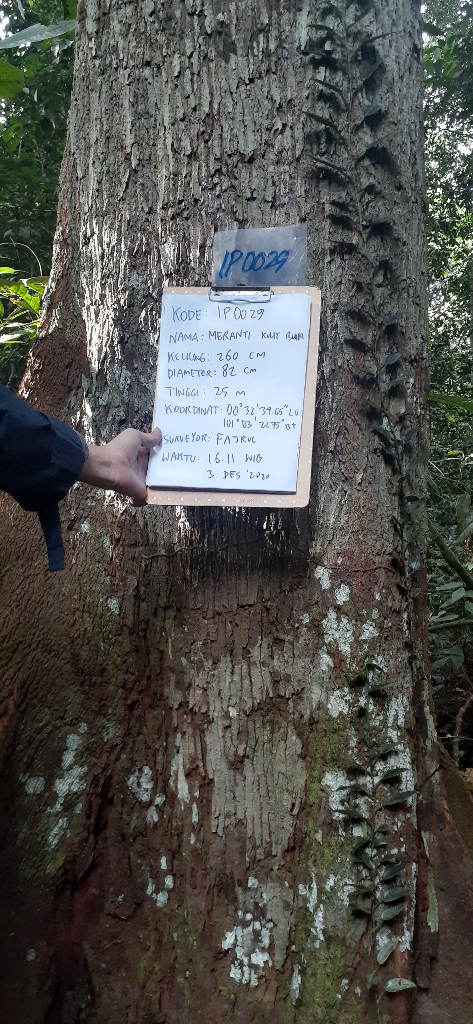 IP0029
KODE: IP0029
NAMA: MERANTI KULIT
KELILING: 260 CM
DIAMETER: 82 CM
TINGGI: 25 M
KOORDINAT: 00° 32' 39.65" LU
101° 03' 21.75" BT
SURVEYOR: FAJRUL
WAKTU: 16.11 WIB
3 DES '2020